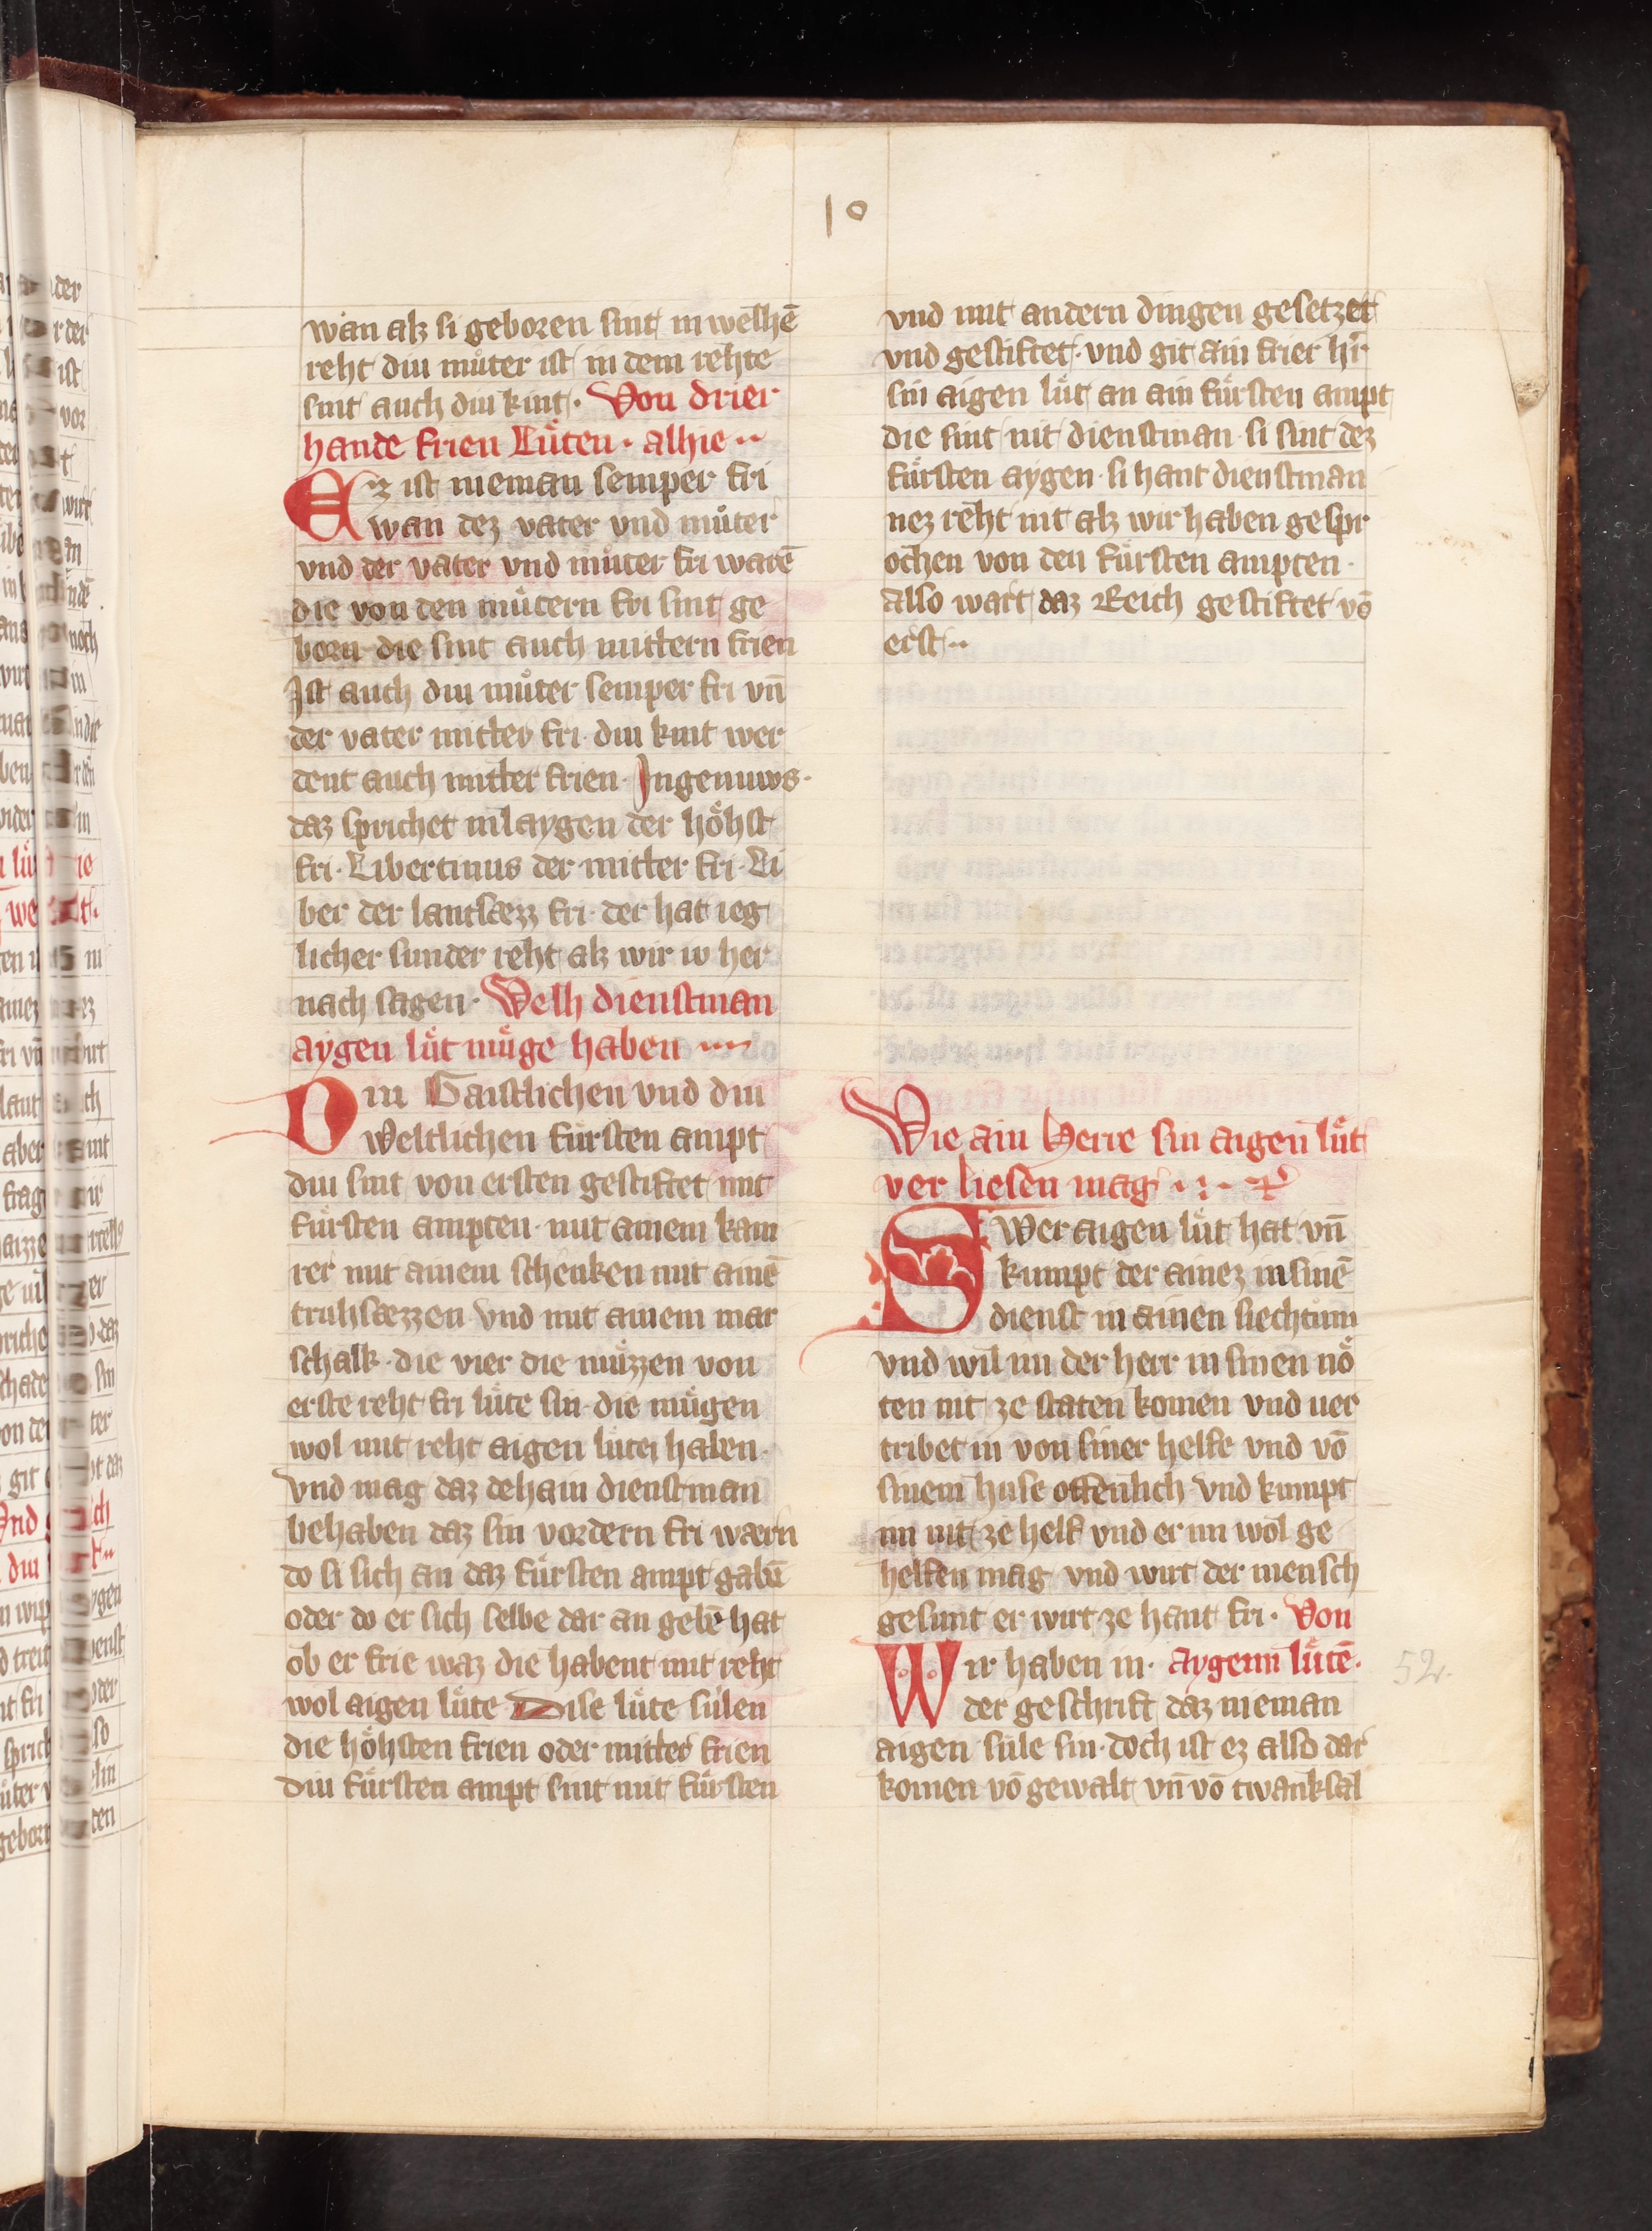 10
wan alz si geboren sint in welhē
reht diu muͦter ist in dem rehte
sint auch diu kint. Von drier
hande frien Luͤten. alhie
Ez ist nieman semper fri
wan dez vater vnd muͦter
vnd der vater vnd muͦter fri warē
die von den muͦtern fri sint ge
born die sint auch mittern frien
Ist auch diu muͦter semper fri vn̄
der vater mitler fri. diu kint wer
dent auch mitler frien. Ingenuws.
daz sprichet in laygen der hoͤhst
fri. Libertinus der mitler fri. Li
ber der lantsæzz fri. der hat ieg
licher sunder reht alz wir iv her
nach sagen. Welh dienstman
aygen luͤt muͤge haben
Diu Gaistlichen vnd diu
weltlichen fursten ampt
diu sint von ersten gestiftet mit
fuͤrsten ampten. mit ainem kam
rer mit ainem schenken mit ainē
truhsæzzen vnd mit ainem mar
schalk. die vier die muͤzzen von
erste reht fri luͤte sin. die muͤgen
wol mit reht aigen luͤte haben.
vnd mag daz dehain dienstman
behaben daz sin vordern fri wærn
do si sich an daz fuͤrsten ampt gabē
oder do er sich selbe dar an gebē hat
ob er frie waz die habent mit reht
wol aigen luͤte Dise luͤte sulen
die hoͤhsten frien oder mitler frien
diu fuͤrsten ampt sint mit fuͤrsten
vnd mit andern dingen gesetzet
vnd gestiftet. vnd git ain frier hr̄
sin aigen luͤt an ain fuͤrsten ampt
die sint nit dienstman si sint dez
fuͤrsten aygen. si hant dienstman
nez reht nit alz wir haben gespr
ochen von den fuͤrsten ampten.
also wart daz Reich gestiftet vō
erst
Wie ain Herre sin aigen luͤt
ver liesen mag
Swer aigen luͤt hat vn̄
kumpt der ainez in sinē
dienst in ainen siechtum
vnd wil im der herr in sinen noͤ
ten nit ze staten komen vnd uer
tribet in von siner helfe vnd vō
sinem huse offenlich vnd kumpt
im nit ze helf vnd er im wol ge
helfen mag vnd wirt der mensch
gesunt er wirt ze hant fri. Von
Wir haben in. aygenn luͤtē.
der geschrift daz nieman
aigen sule sin. doch ist ez also dar
komen vō gewalt vn̄ vō twanksal
52.